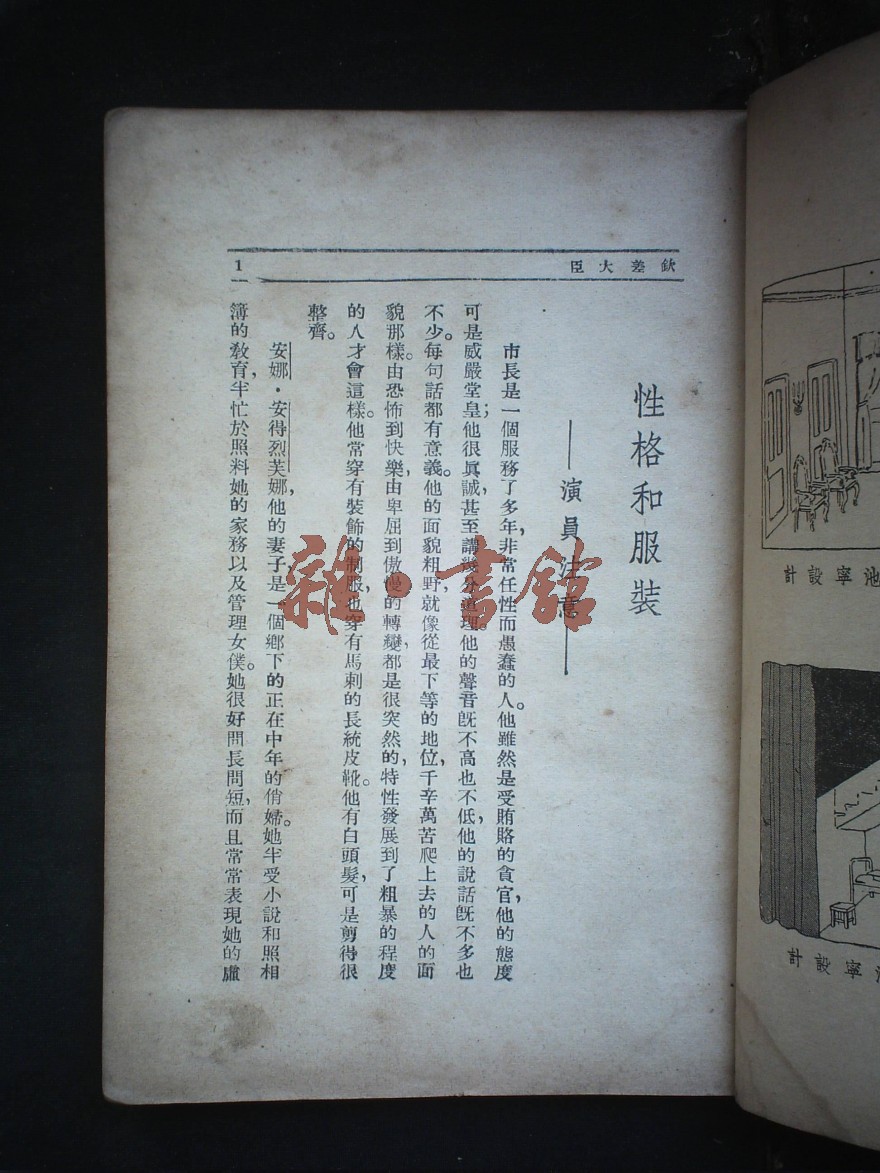 欽差大臣
1
性格和服裝
——演員注意——
市長是一個服務了多年，非常任性而愚蠢的人。他雖然是受賄賂的貪官，他的態度
可是威嚴堂皇；他很眞誠，甚至講幾分道理。他的聲音旣不高也不低，他的說話旣不多也
不少。每句話都有意義。他的面貌粗野，就像從最下等的地位，千辛萬苦爬上去的人的面
貌那樣。由恐怖到快樂，由卑屈到傲慢的轉變，都是很突然的，特性發展到了粗暴的程度
的人才會這樣。他常穿有裝飾的制服，也穿有馬刺的長統皮靴。他有白頭髮，可是剪得很
整齊。
安娜·安得烈芙娜，他的妻子，是一個鄉下的正在中年的俏婦。她半受小說和照相
簿的敎育，半忙於照料她的家務以及管理女僕。她很好問長問短，而且常常表現她的虛
雜·書館
池寧設計
寧設計